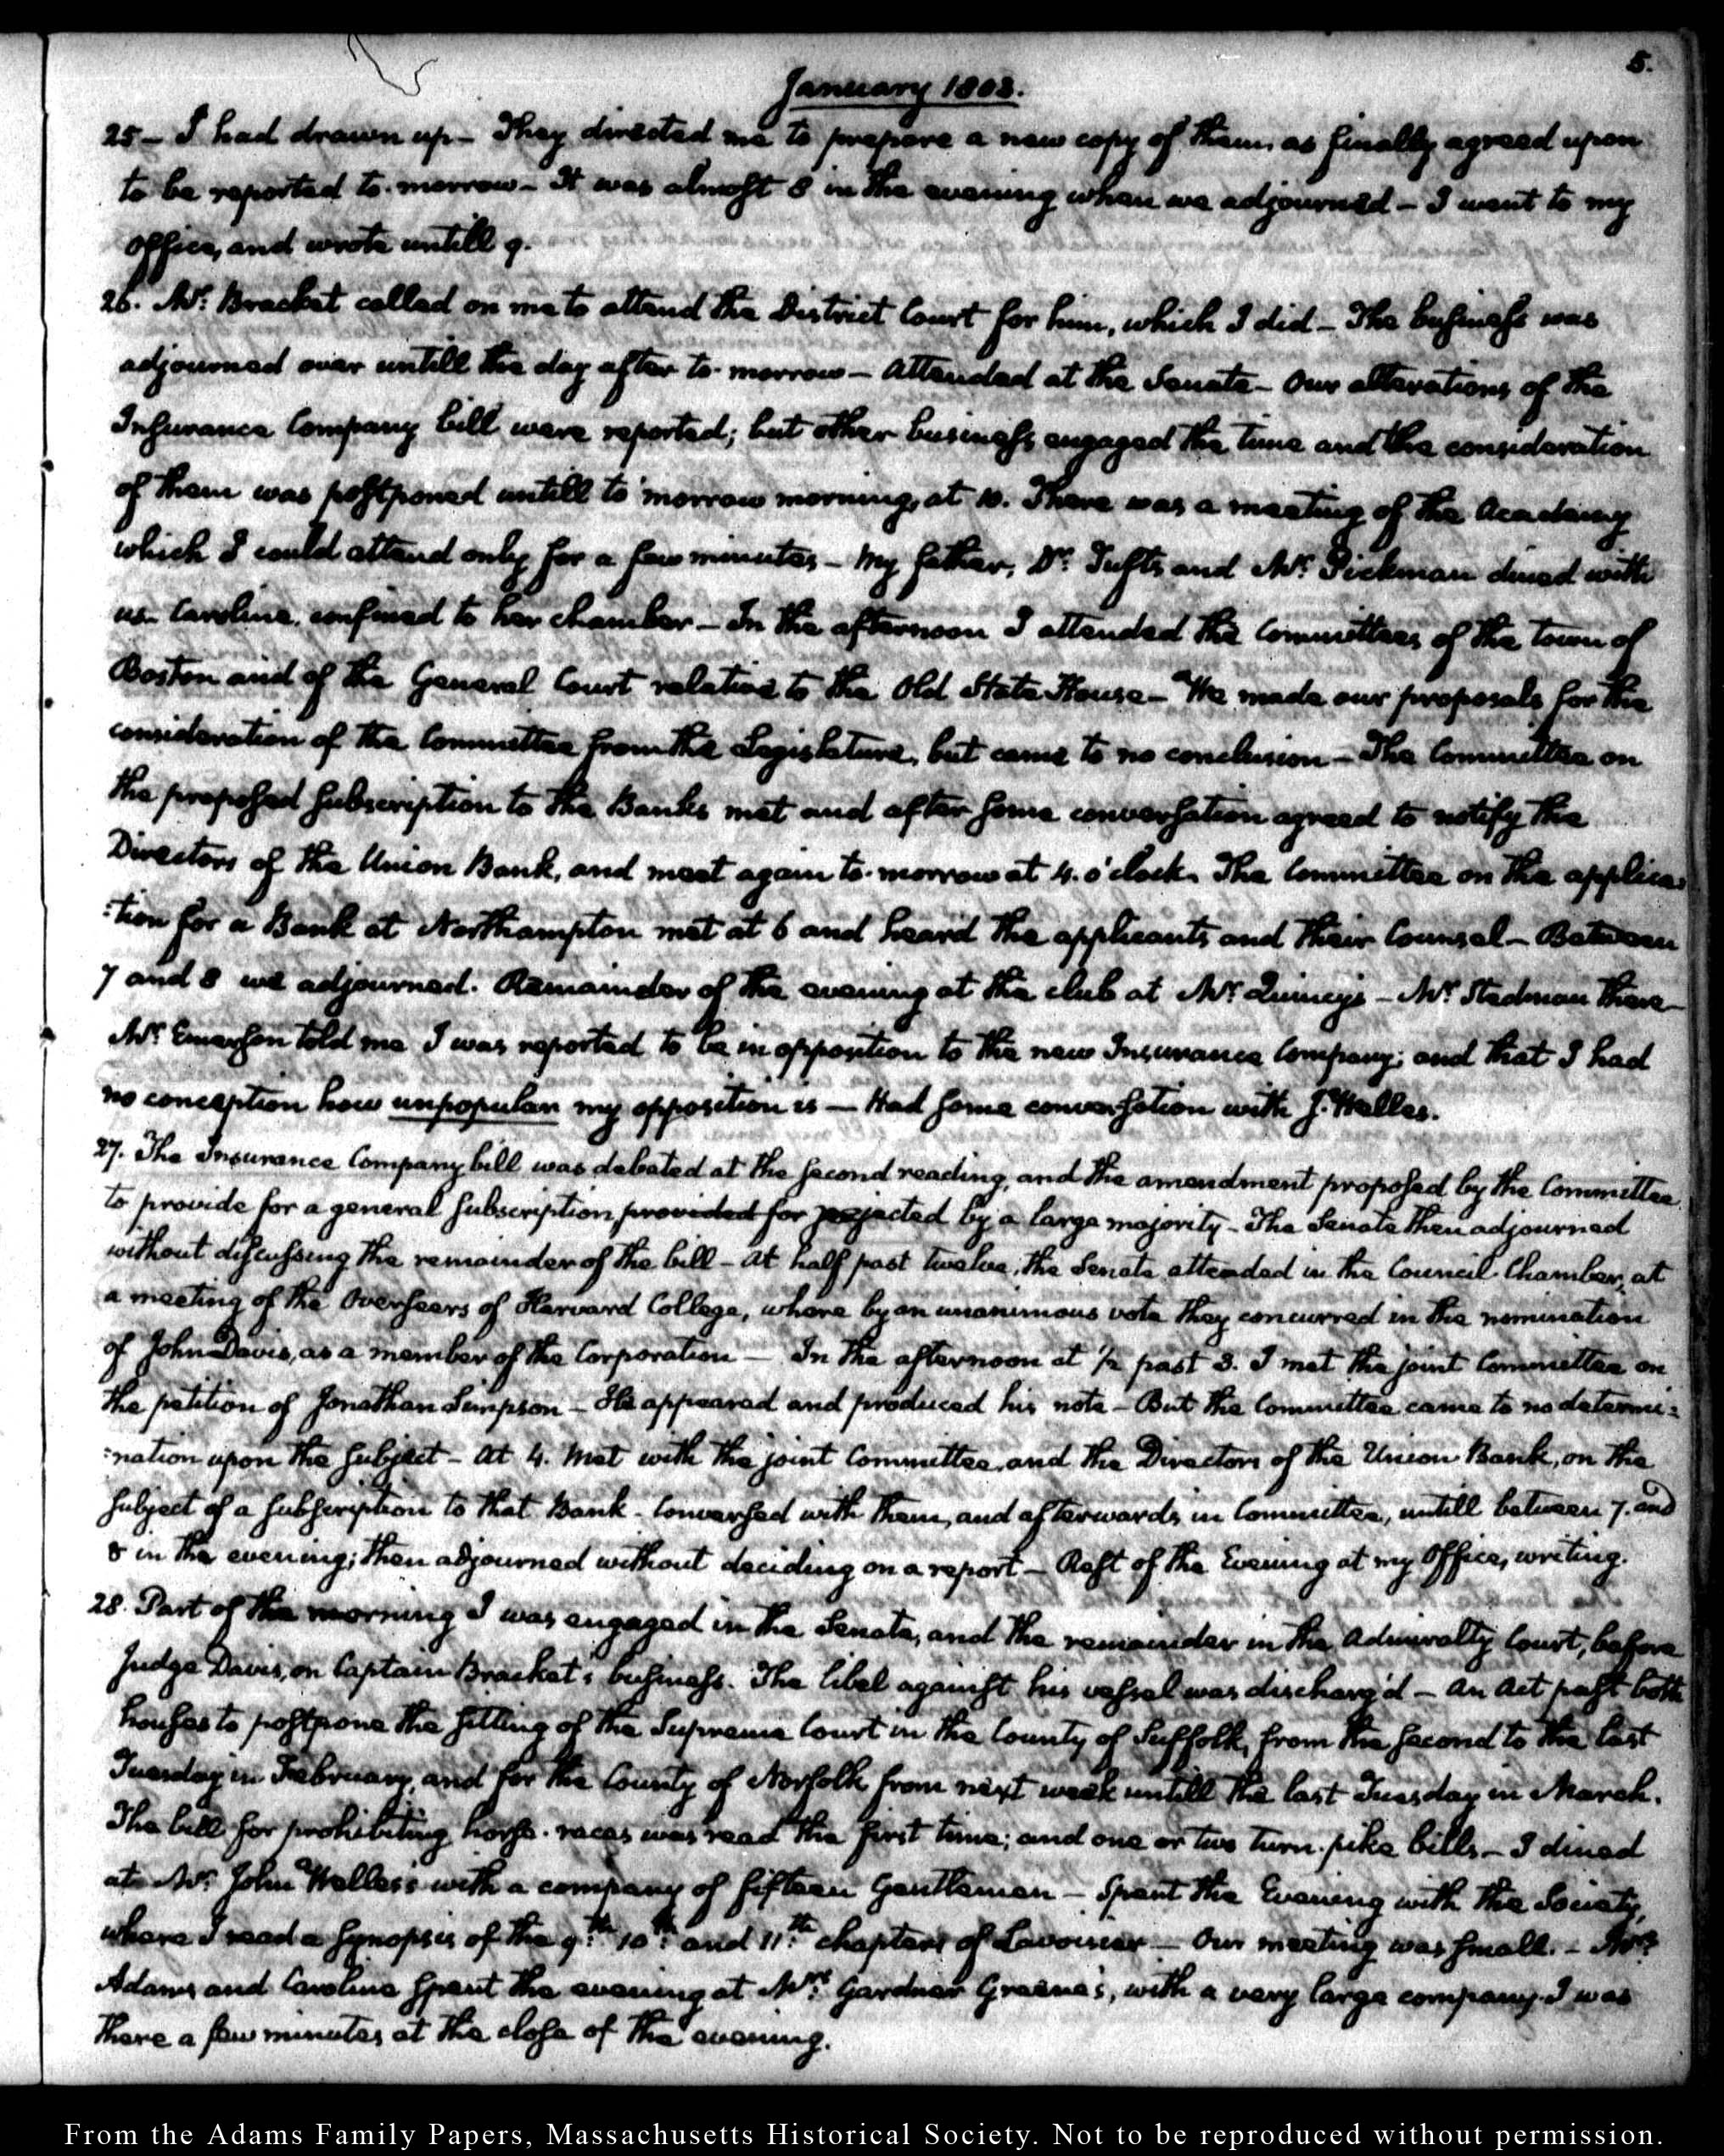 5.
January 1803.
25 – I had drawn up – They directed me to prepare a new copy of them, as finally agreed upon
to be reported to-morrow – It was almost 8 in the evening when we adjourned – I went to my
office, and wrote untill 9.
26. Mr: Bracket called on me to attend the District Court for him, which I did – The business was
adjourned over untill the day after to-morrow – Attended at the Senate – Our alterations of the
Insurance Company bill were reported; but other business engaged the time and the consideration
of them was postponed untill to morrow morning, at 10. There was a meeting of the Academy
which I could attend only for a few minutes – My father, Dr: Tufts and Mr: Pickman dined with
us – Caroline, confined to her chamber – In the afternoon I attended the Committees of the town of
Boston and of the General Court relative to the Old State House – We made our proposals for the
consideration of the Committee from the Legislature, but came to no conclusion – The Committee on
the proposed subscription to the Banks met and after some conversation agreed to notify the
Directors of the Union Bank, and meet again to-morrow at 4. o'clock. The Committee on the applica:
:tion for a Bank at Northampton met at 6 and heard the applicants and their Counsel – Between
7 and 8 we adjourned. Remainder of the evening at the club at Mr: Quincy's – Mr: Stedman there –
Mr: Emerson told me I was reported to be in opposition to the new Insurance Company; and that I had
no conception how unpopular my opposition is — Had some conversation with J. Welles.
27. The Insurance Company bill was debated at the second reading, and the amendment proposed by the Committee
to provide for a general subscription, provided for rejected by a large majority – The Senate then adjourned
without discussing the remainder of the bill – At half past twelve, the Senate attended in the Council Chamber, at
a meeting of the Overseers of Harvard College, where by an unanimous vote they concurred in the nomination
of John Davis, as a member of the Corporation — In the afternoon at ½ past 3. I met the joint Committee on
the petition of Jonathan Simpson – He appeared and produced his note – But the Committee came to no determi:
:nation upon the subject – At 4. Met with the joint Committee, and the Directors of the Union Bank, on the
subject of a subscription to that Bank – Conversed with them, and afterwards in Committee, untill between 7. and
8 in the evening; then adjourned without deciding on a report – Rest of the Evening at my Office, writing.
28. Part of the morning I was engaged in the Senate, and the remainder in the Admiralty Court, before
Judge Davis, on Captain Bracket's business. The libel against his vessel was discharg'd – An Act past both
houses to postpone the sitting of the Supreme Court in the County of Suffolk, from the second to the last
Tuesday in February, and for the County of Norfolk from next week untill the last Tuesday in March.
The bill for prohibiting horse-races was read the first time; and one or two turn-pike bills – I dined
at Mr: John Welles's with a company of fifteen Gentlemen – Spent the Evening with the Society,
where I read a synopsis of the 9th: 10th: and 11th: chapters of Lavoisier — Our meeting was small. – Mrs:
Adams and Caroline spent the evening at Mrs: Gardner Greene's, with a very large company. I was
there a few minutes at the close of the evening.
From the Adams Family Papers, Massachusetts Historical Society. Not to be reproduced without permission.